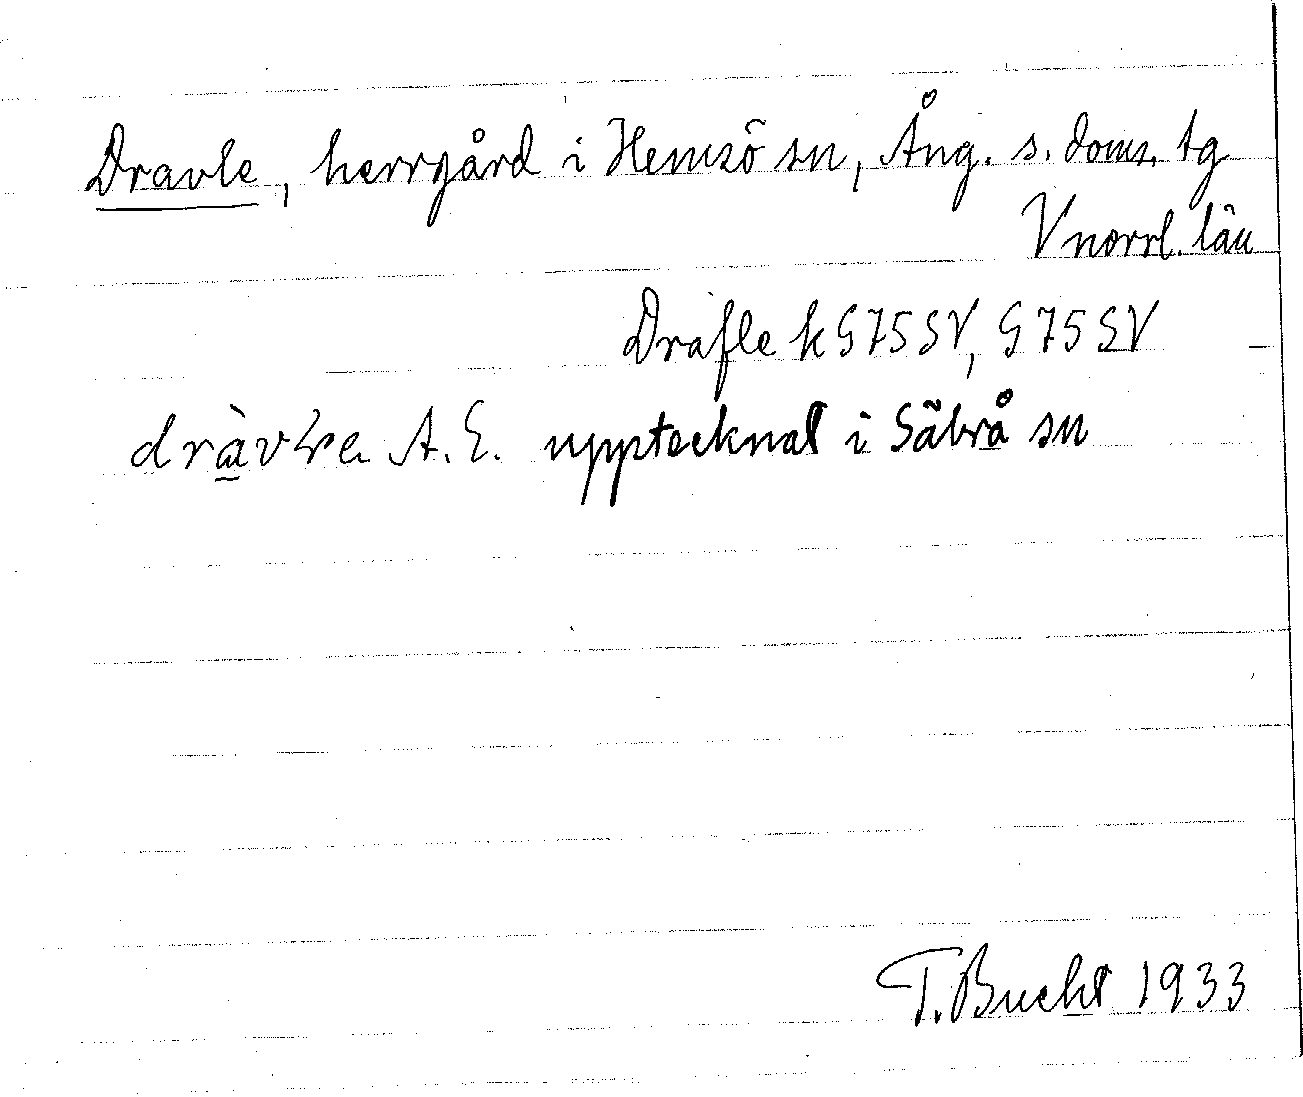 Dravle, herrgård i Hemsö sn, Ång. s. doms. tg
Vnorrl. län
Drafle k G75SV, G75SV
A. E. upptecknat i Säbrå sn
T. Bucht 1933